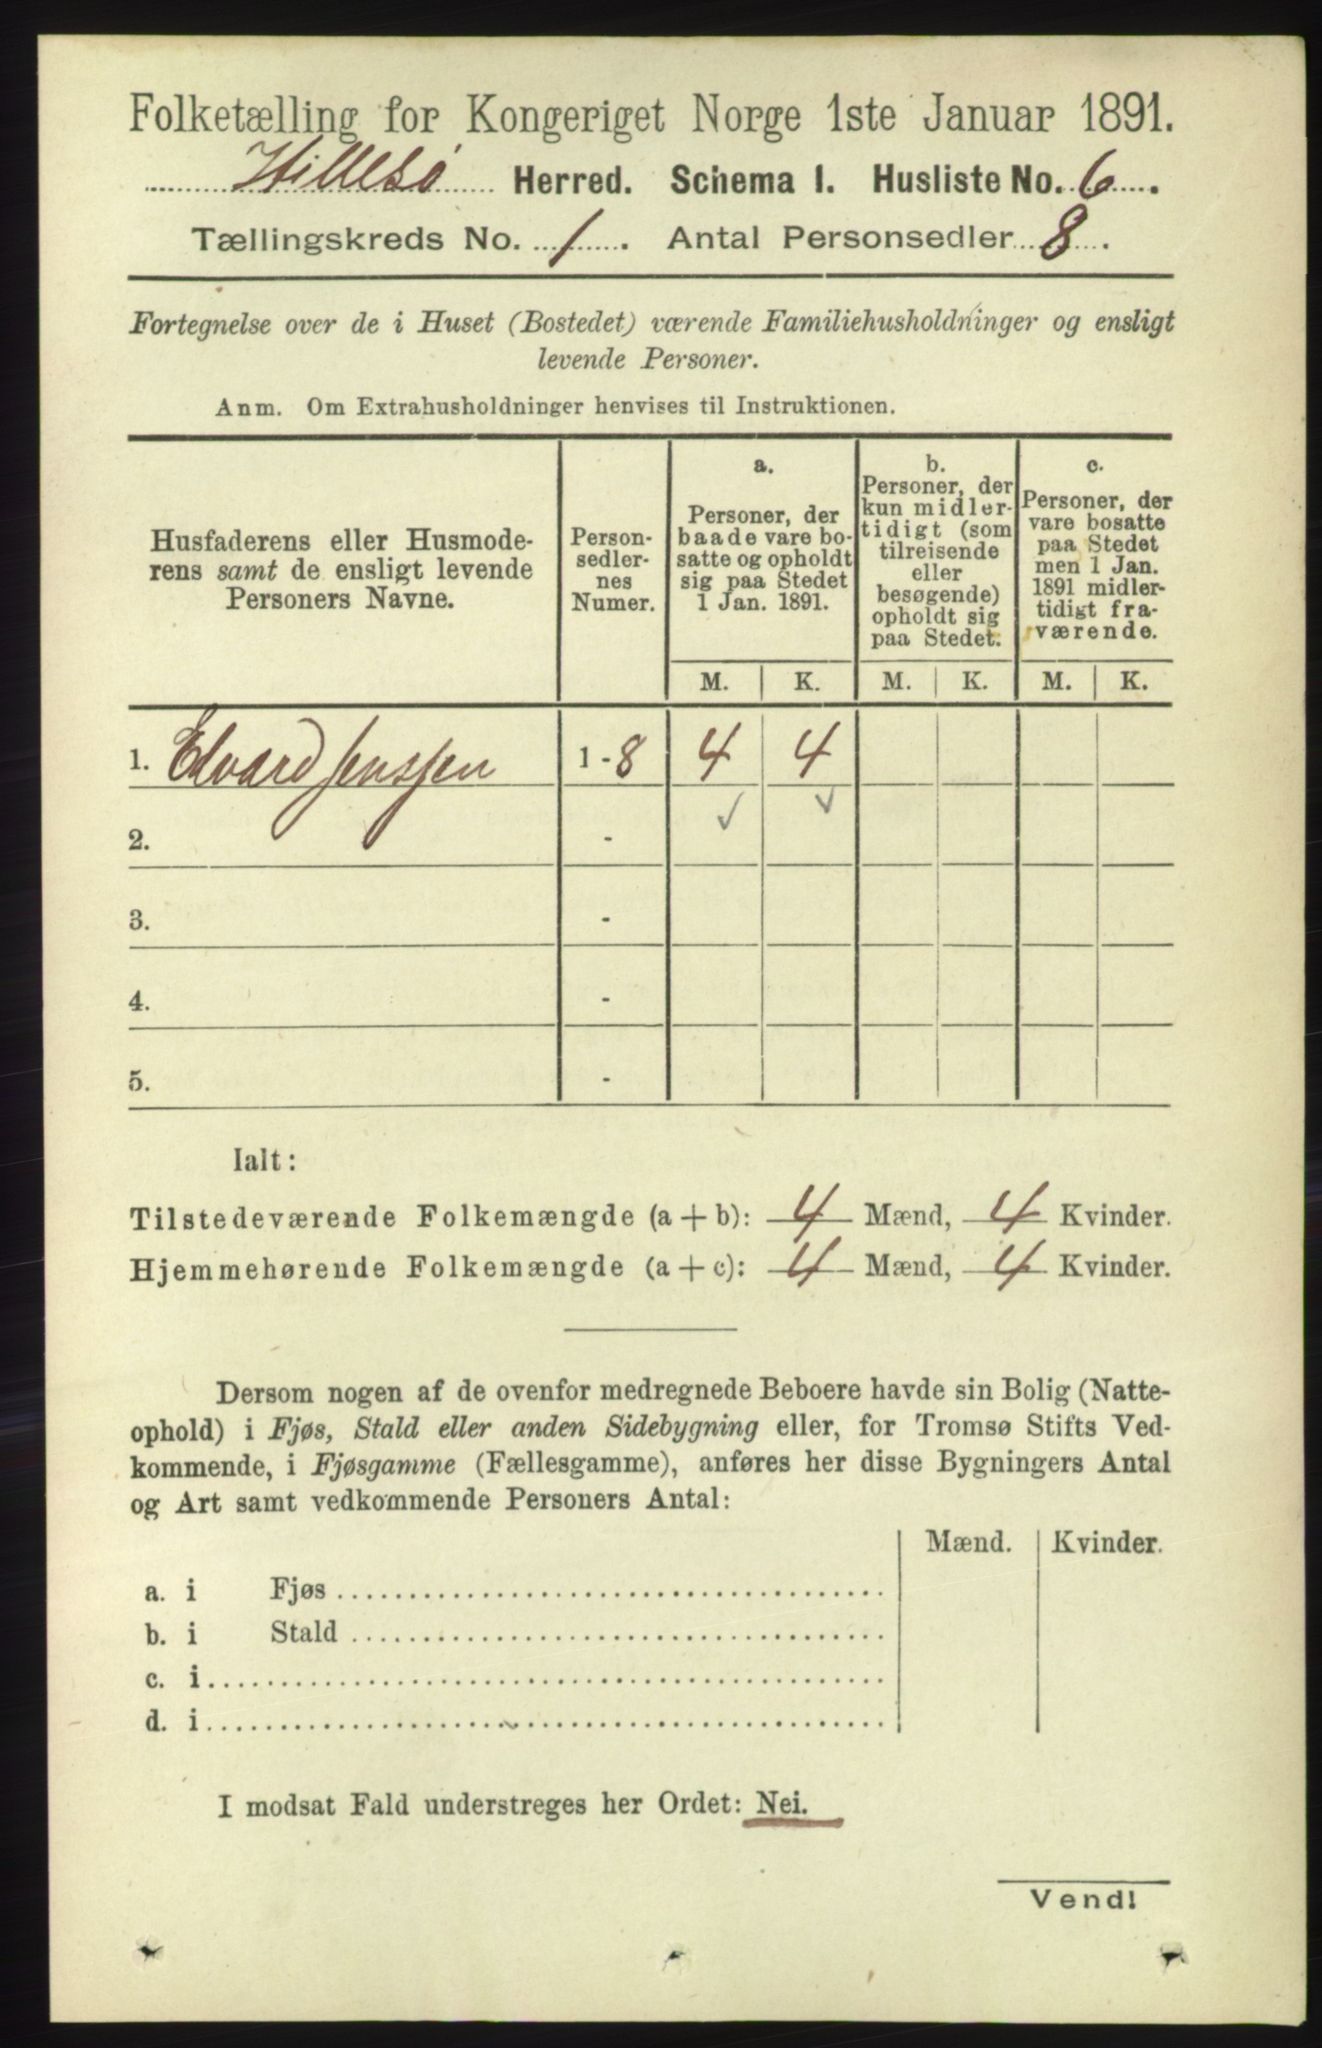 Folketælling for Kongeriget Norge 1ste Januar 1891.
Hillesø Herred. Schema I. Husliste No. 6.
Tællingskreds No. 1. Antal Personsedler 8.
Fortegnelse over de i Huset (Bostedet) værende Familiehusholdninger og ensligt
levende Personer.
Anm. Om Extrahusholdninger henvises til Instruktionen.
Husfaderens eller Husmode-
rens samt de ensligt levende
Personers Navne.
Person-
sedler-
nes
Numer.
a.
Personer, der
baade vare bo-
satte og opholdt
sig paa Stedet
1 Jan. 1891.
b.
Personer, der
kun midler-
tidigt (som
tilreisende
eller
besøgende)
opholdt sig
paa Stedet.
c.
Personer, der
vare bosatte
paa Stedet
men 1 Jan.
1891 midler-
tidigt fra-
værende.
M. K. M. K. M. K.
1. Edvard Jenssen 1 - 8 4 4
2. -
3. -
4. -
5. -
Ialt:
Tilstedeværende Folkemængde (a + b): 4 Mænd, 4 Kvinder.
Hjemmehørende Folkemængde (a + c): 4 Mænd, 4 Kvinder.
Dersom nogen af de ovenfor medregnede Beboere havde sin Bolig (Natte-
ophold) i Fjøs, Stald eller anden Sidebygning eller, for Tromsø Stifts Ved-
kommende, i Fjøsgamme (Fællesgamme), anføres her disse Bygningers Antal
og Art samt vedkommende Personers Antal:
Mænd. Kvinder.
a. i Fjøs
b. i Stald
c. i
d. i
I modsat Fald understreges her Ordet: Nei.
Vend!